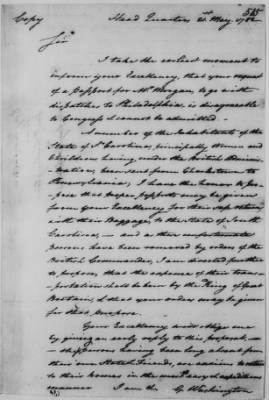 Copy
545
Head Quarters 21st May 1782
Sir
I take the earliest moment to
inform your Excellency, that your request
of a Passport for Mr Morgan, to go with
dispatches to Philadelphia, is disagreeable
to Congress & cannot be admitted —
A number of the Inhabitants of the
State of So Carolina, principally Women and
Children having, under the British Admini-
stration, been sent from Charlestown to
Pennsylvania; I have the honor to pro-
pose that proper passports may be given
from your Excellency for their safe return,
with their Baggage, to the State of South
Carolina, — and as these unfortunate
persons have been removed by orders of the
British Commander, I am directed further
to propose, that the expence of their trans-
portation shall be born by the King of Great
Britain, & that your orders may be given
for that purpose.
Your Excellency will oblige me
by giving an early reply to this proposal, —
as these persons having been long absent from
their own State & friends, are anxious to return
to their homes in the most expeditious
manner I am &c G. Washington